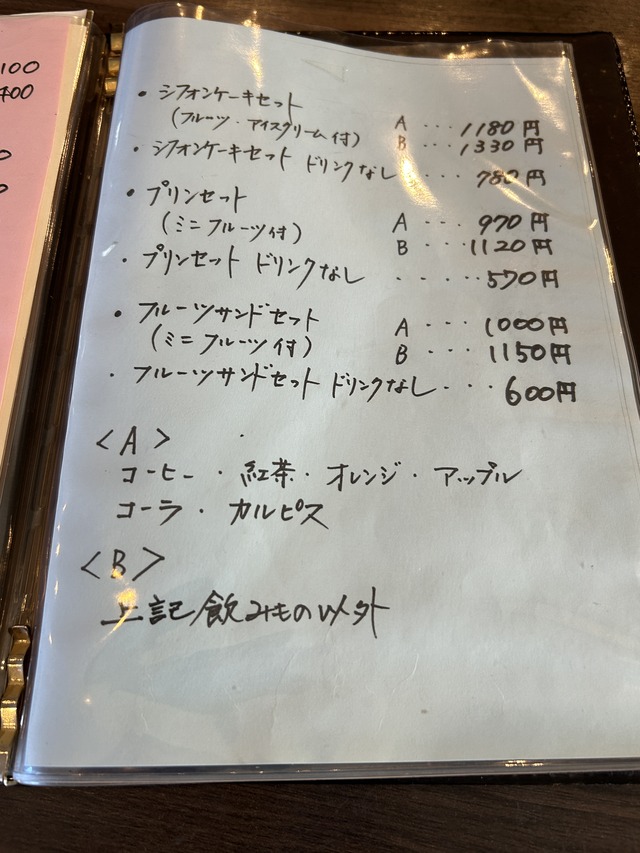 100
400
• シフォンケーキセット
(フルーツ・アイスクリーム付) A ・・・1180円
B ・・・1330円
・シフォンケーキセット ドリンクなし ・・・・780円
• プリンセット A ・・・970円
(ミニフルーツ付) B ・・・1120円
・プリンセット ドリンクなし ・・・・・570円
• フルーツサンドセット A ・・・1000円
(ミニフルーツ付) B ・・・1150円
・フルーツサンドセット ドリンクなし・・・600円
<A>
コーヒー・紅茶・オレンジ・アップル
コーラ・カルピス
<B>
上記飲みもの以外